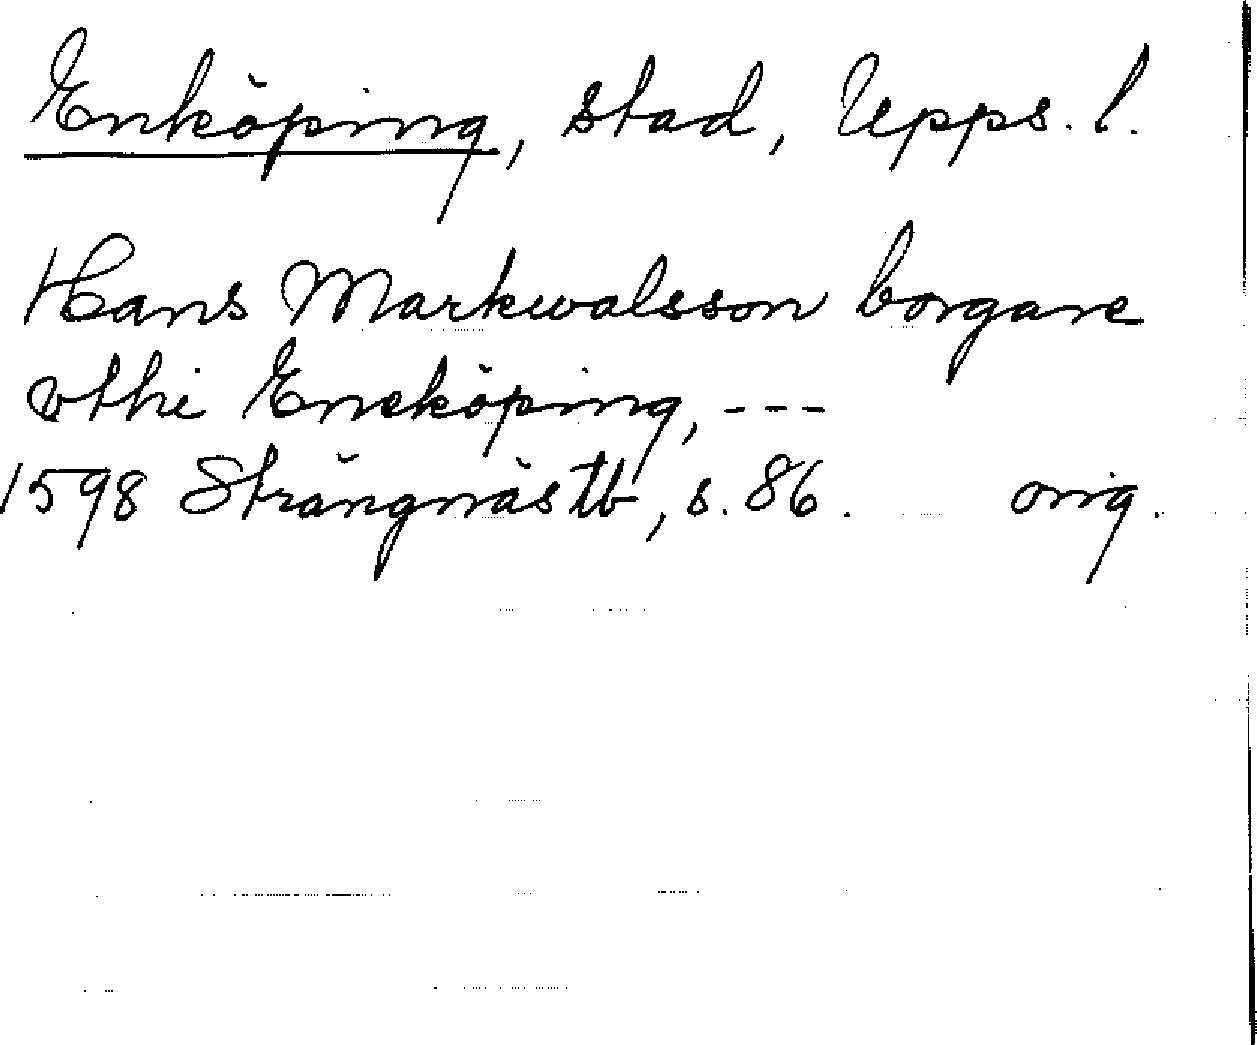 Enköping, stad, Upps. l.
Hans Markwalsson borgare
vthi Eneköping, ---
1598 Strängnäs tb, s. 86. orig.